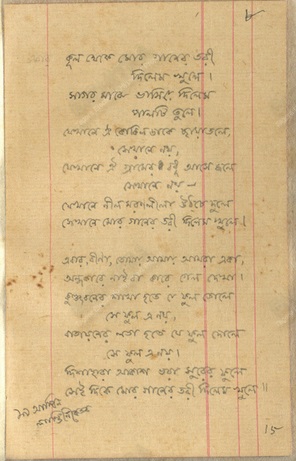 ৮
কূল থেকে মোর গানের তরী
দিলেম খুলে।
সাগর মাঝে ভাসিয়ে দিলেম
পালটি তুলে।
যেখানে ঐ কোকিল ডাকে ছায়াতলে,
সেখানে নয়,
যেখানে ঐ গ্রামের বধূ আসে জলে
সেখানে নয়—
যেখানে নীল মরণলীলা উঠছে দুলে
সেখানে মোর গানের তরী দিলেম খুলে।
এবার, বীণা, তোমায় আমায় আমরা একা,
অন্ধকারে নাইবা কারে গেল দেখা।
কুঞ্জবনের শাখা হতে যে ফুল তোলে
সে ফুল এ নয়,
বাতায়নের লতা হতে যে ফুল দোলে
সে ফুল এ নয়।
দিশাহারা আকাশ ভরা সুরের ফুলে
সেই দিকে মোর গানের তরী দিলেম খুলে॥
আশ্বিন
শান্তিনিকেতন
15